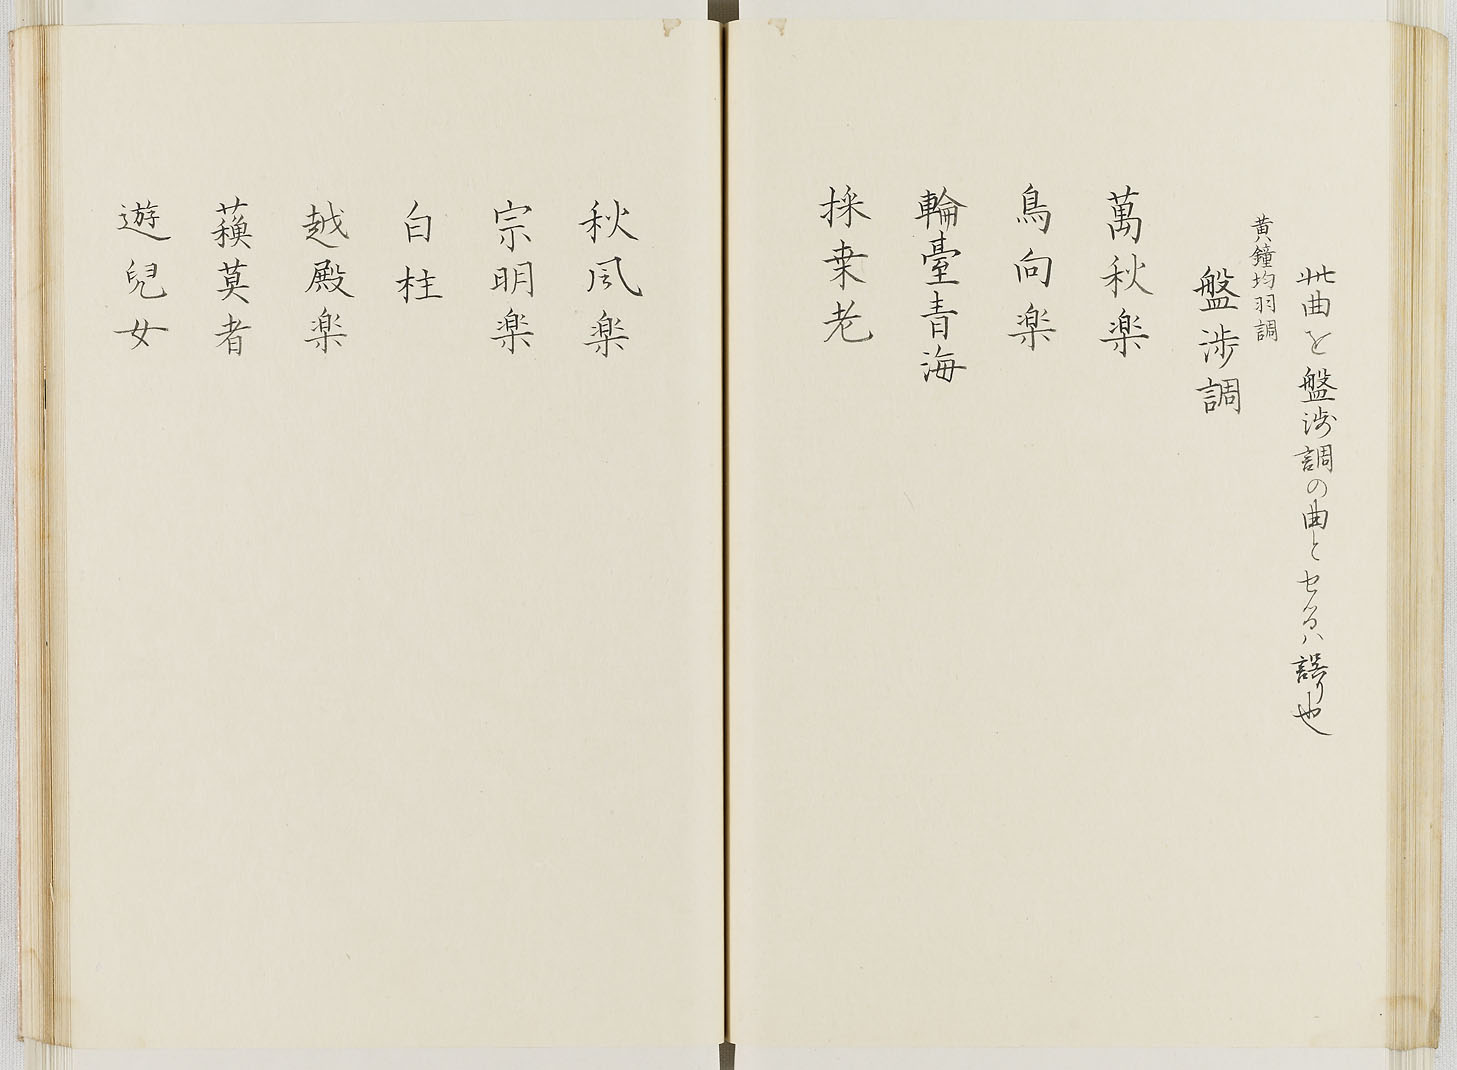 此曲を盤渉調の曲とセるハ誤り也
黄鐘均羽調
盤渉調
萬秋楽
鳥向楽
輪臺青海
採桒老
秋风楽
宗明楽
白柱
越殿楽
蘓莫者
遊兒女